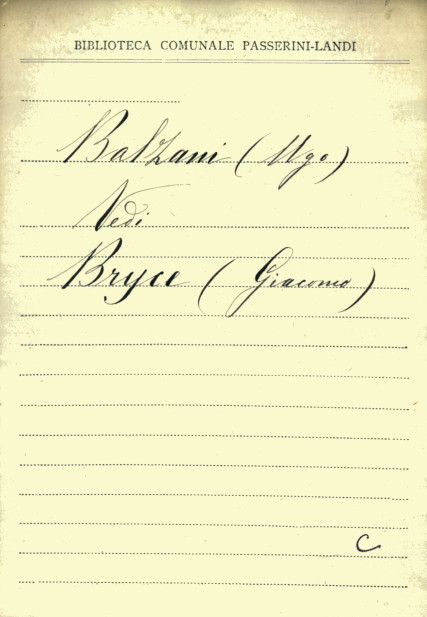 BIBLIOTECA COMUNALE PASSERINI-LANDI
Balzani (Ugo)
Vedi
Bryce (Giacomo)
C